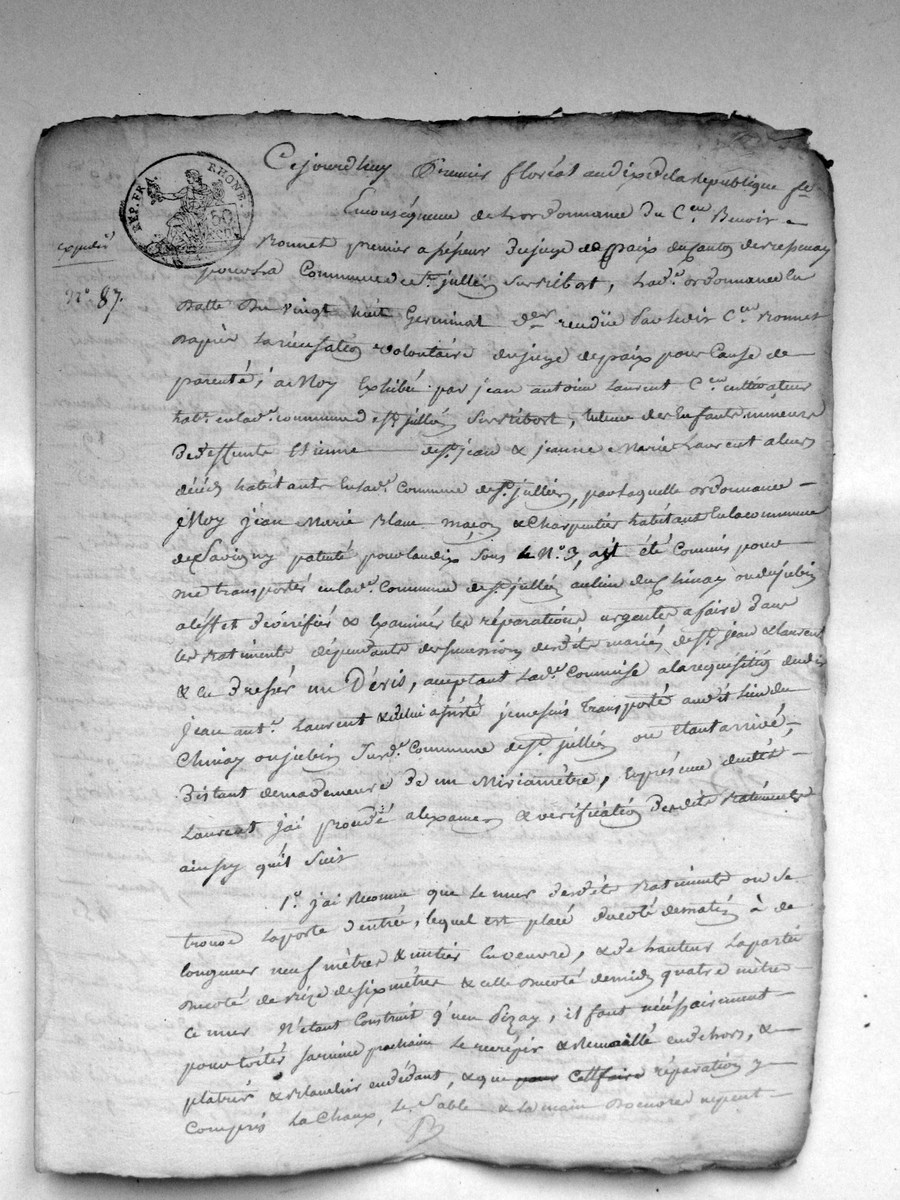 REP. FRA. RHONE.
Cejourd'huy Premier floréal an dix de la republique f.se
En conséquence de l'ordonnance du C.en Benoit
expédié
Bonnet premier assesseur du juge de paix du canton de
pour la Commune de St. jullien sur Bibort, lad.e ordonnance en
N.o 87.
datte du vingt huit Germinal d.er rendüe par ledit C.en Bonnet
d'après la récusation volontaire du juge de paix pour cause de
parenté, à Moy Exhibée par jean antoine Laurent C.en cultivateur
hab.t en lad.e commune de St. jullien sur Bibort, tuteur des Enfants mineurs
de deffunts Etienne de St. jean & jeanne Marie Laurent
décédés habitants en lad.e Commune de St. jullien, par laquelle ordonnance
Moy jean Marie Blanc maçon & Charpentier habitant en la commune
de Savigny patenté pour l'an dix sous le N.o 3, ait été Commis pour
me transporter en lad.e Commune de St. jullien au lieu du Chinay ou dujubin
a l'effet de vérifier & Examiner les réparations urgentes a faire dans
les Batiments dépendants des successions desdits mariés de St. jean & Laurent
& en Dresser un Dévis, acceptant lad.e Commise a la requisition dudit
jean ant.e Laurent & de lui assisté je me suis Transporté audit lieu du
Chinay ou jubin Surd.e Commune de St. jullien ou étant arrivé,
Distant de ma demeure de un Miriamètre, En présence dudit
Laurent j'ai procédé a l'examen & vérification desdits Batiments
ainsy qu'il suit
1.o j'ai Reconnu que le mur desdits Batiments ou se
trouve la porte d'entrée, lequel est placé du coté de matin à de
longueur neuf mètres & un tiers en oeuvre, & de hauteur la partie
du coté de bize de six mètres & celle du coté de midy quatre mètres
Ce mur N'étant Construit qu'en Pizay, il faut nécéssairement
pour éviter sa ruine prochaine le recrépir & Remaillé en dehors, &
platrer & Blanchir en dedans, & que cette réparation y
Compris la Chaux, le Sable & la main D'oeuvre ne peut